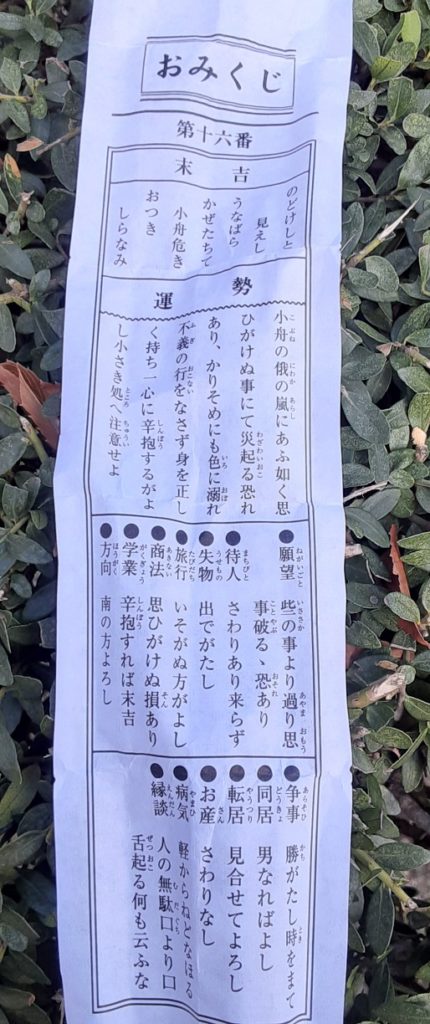 おみくじ
第十六番
末吉
のどけしと
見えし
うなばら
かぜたちて
小舟危き
おつき
しらなみ
運勢
小舟の俄の嵐にあふ如く思
ひがけぬ事にて災起る恐れ
あり、かりそめにも色に溺れ
不義の行をなさず身を正し
く持ち一心に辛抱するがよ
し小さき処へ注意せよ
●願望 些の事より過り思
事破るゝ恐あり
●待人 さわりあり来らず
●失物 出でがたし
●旅行 いそがぬ方がよし
●商法 思ひがけぬ損あり
●学業 辛抱すれば末吉
●方向 南の方よろし
●争事 勝がたし時をまて
●同居 男なればよし
●転居 見合せてよろし
●お産 さわりなし
●病気 軽からねどなほる
●縁談 人の無駄口より口
舌起る何も云ふな